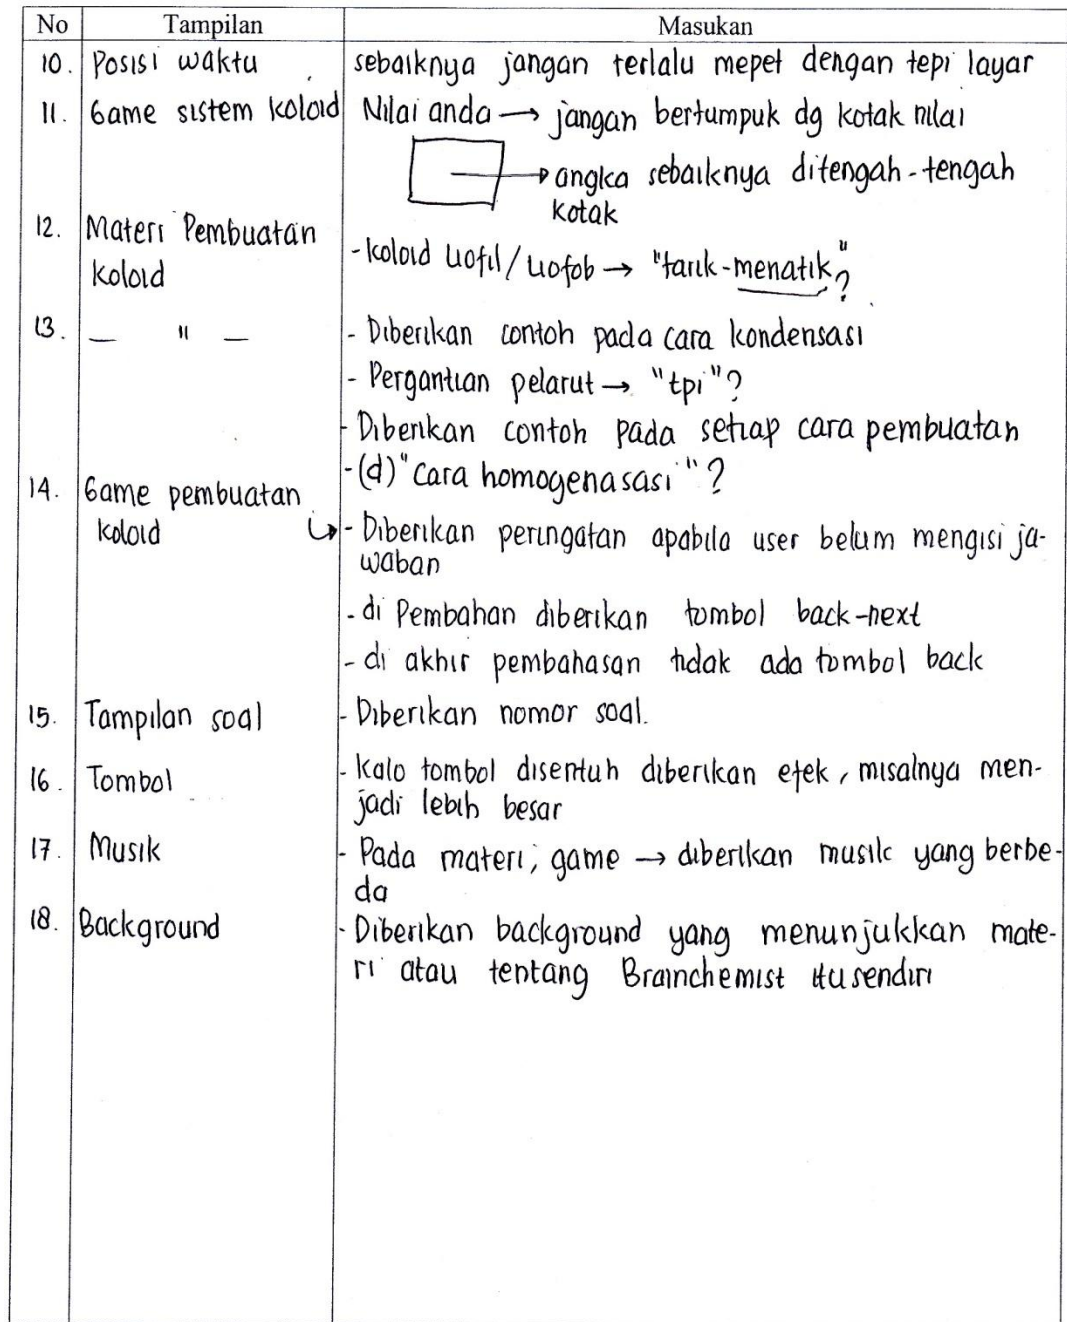 No Tampilan Masukan
10. Posisi waktu sebaiknya jangan terlalu mepet dengan tepi layar
11. Game sistem koloid Nilai anda → jangan bertumpuk dg kotak nilai
→ angka sebaiknya ditengah-tengah
kotak
12. Materi Pembuatan
koloid
- koloid liofil/liofob → "tarik-menatik"?
13. — " — - Diberikan contoh pada cara kondensasi
- Pergantian pelarut → "tpi"?
- Diberikan contoh pada setiap cara pembuatan
- (d) "Cara homogenasasi"?
14. Game pembuatan
koloid
↳ - Diberikan peringatan apabila user belum mengisi ja-
waban
- di Pembahan diberikan tombol back-next
- di akhir pembahasan tidak ada tombol back
15. Tampilan soal - Diberikan nomor soal.
16. Tombol - Kalo tombol disentuh diberikan efek, misalnya men-
jadi lebih besar
17. Musik - Pada materi, game → diberikan musik yang berbe-
da
18. Background - Diberikan background yang menunjukkan mate-
ri atau tentang Brainchemist itu sendiri